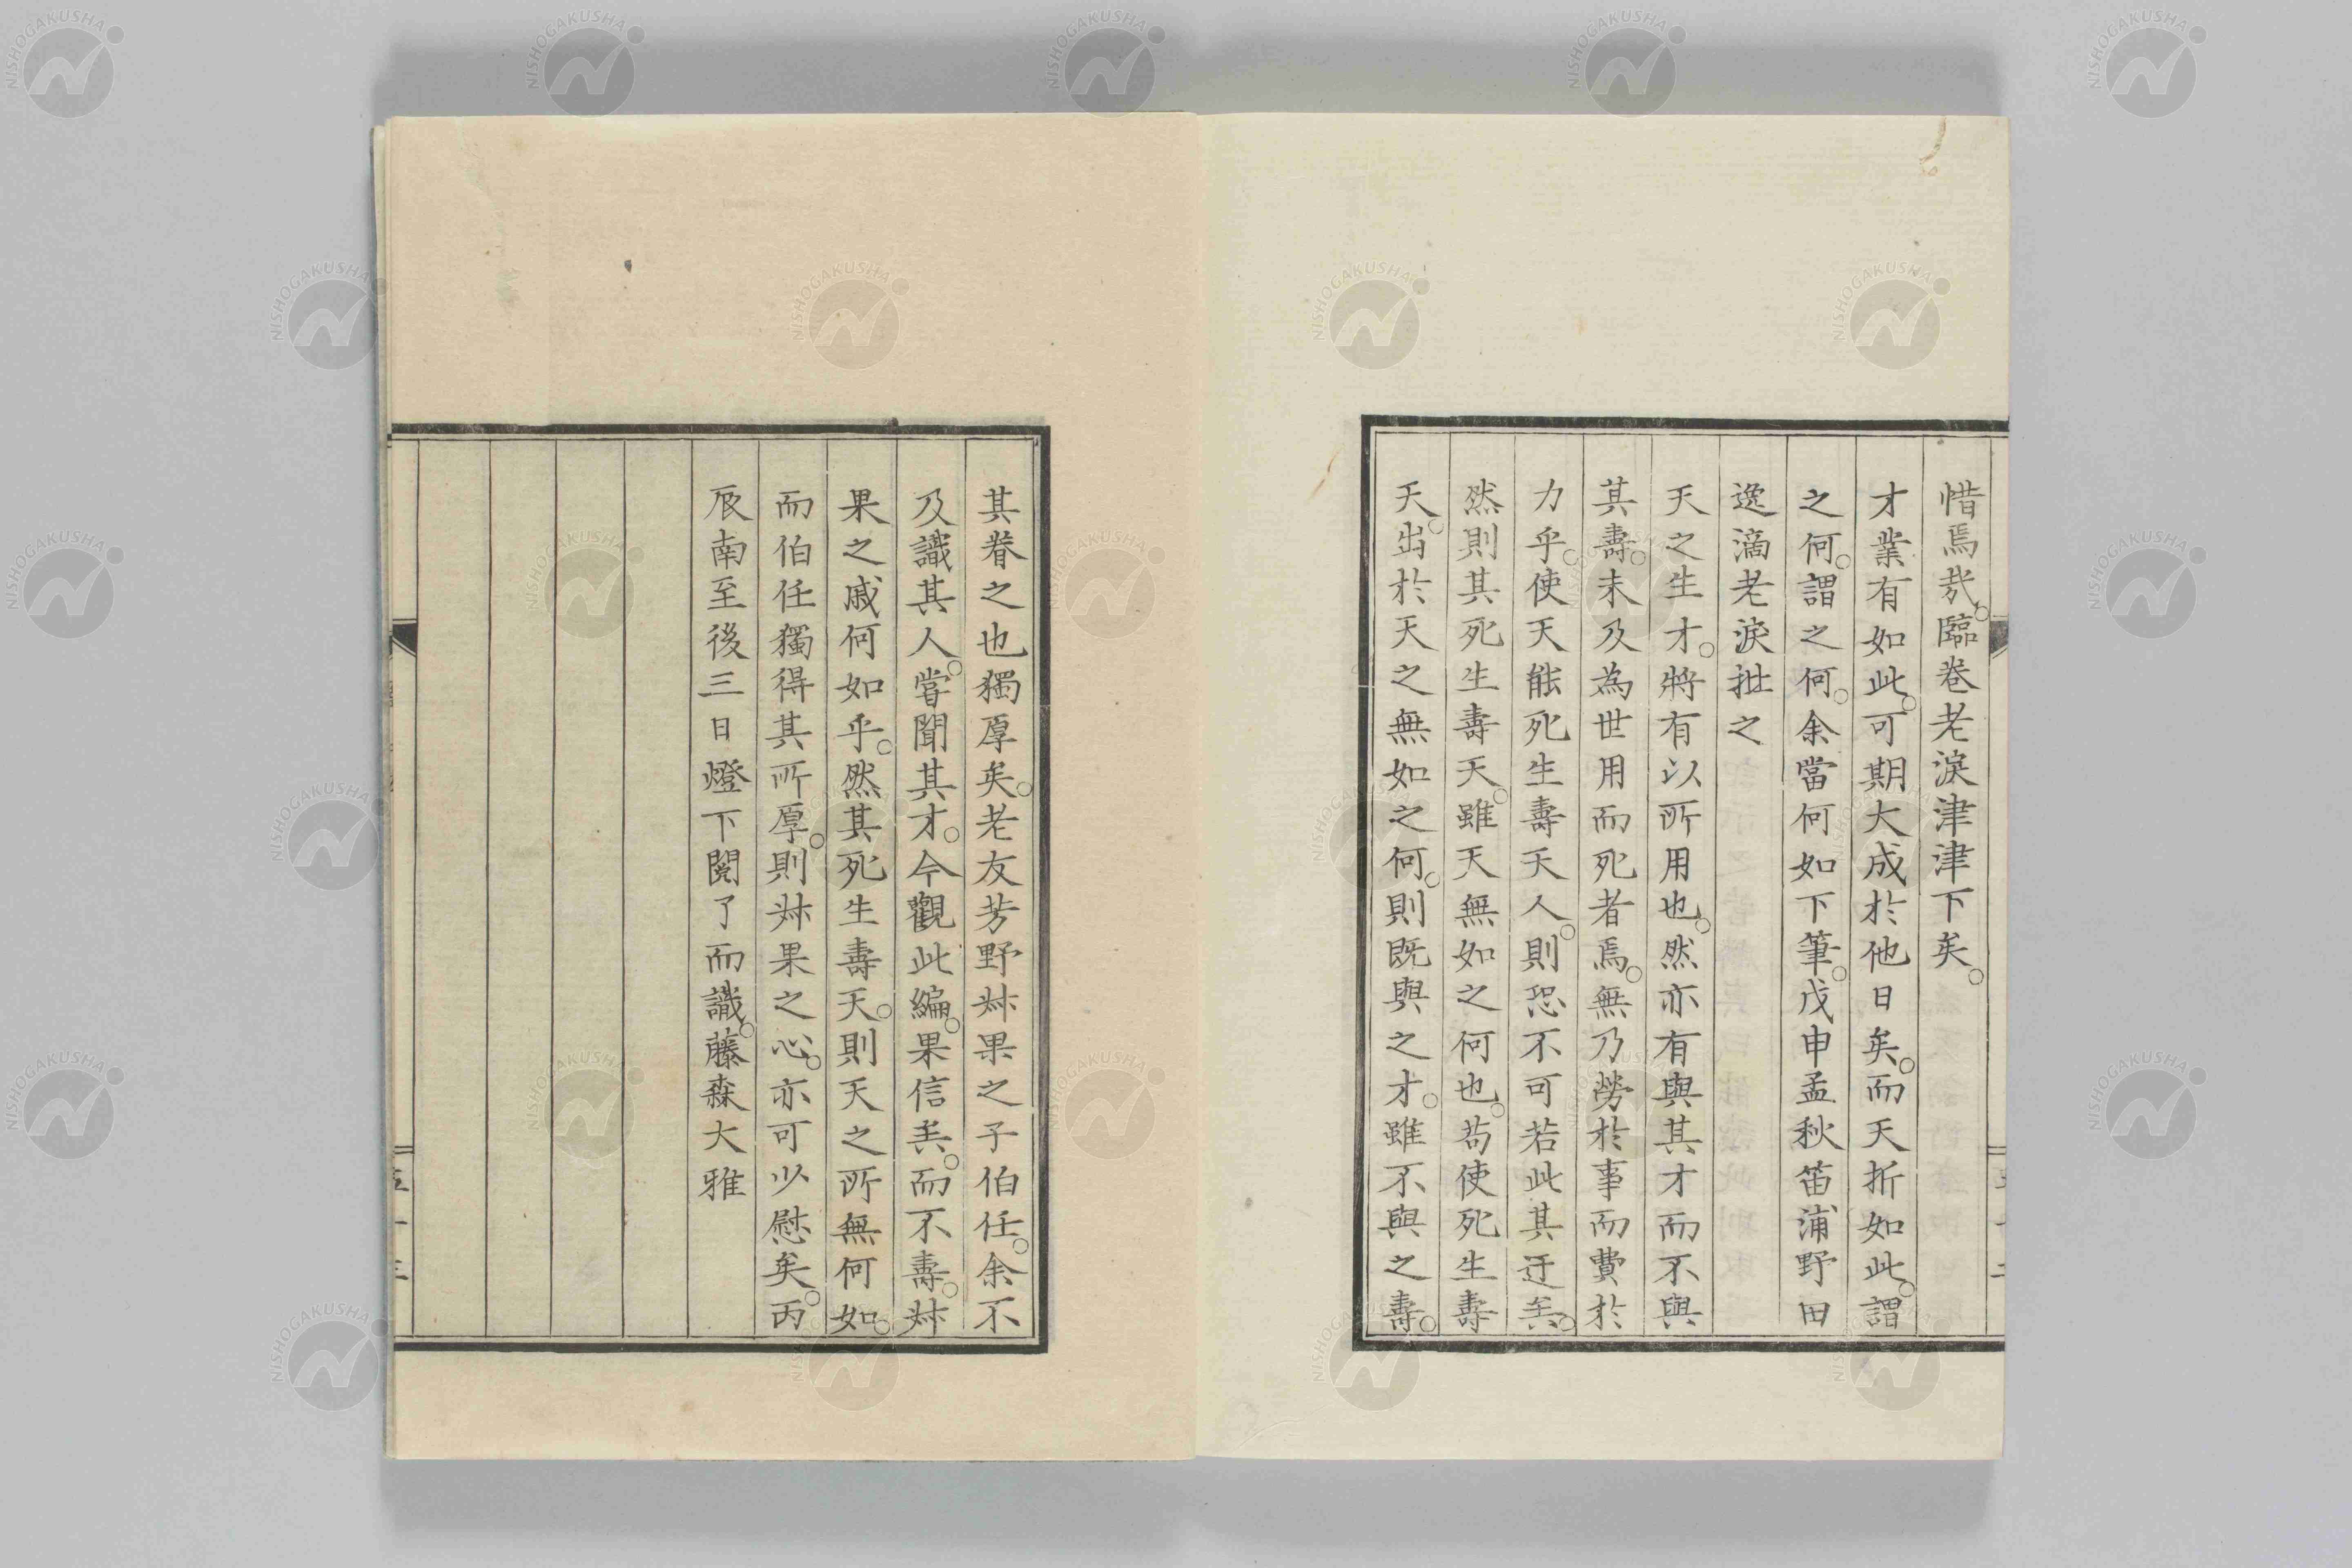 惜焉哉。臨卷老淚津津下矣。
才業有如此。可期大成於他日矣。而天折如此。謂
之何。謂之何。余當何如下筆。戊申孟秋笛浦野田
逸滴老淚批之
天之生才。將有以所用也。然亦有與其才而不與
其壽。未及為世用而死者焉。無乃勞於事而費於
力乎。使天能死生壽夭人。則恐不可若此其迂矣。
然則其死生壽夭。雖天無如之何也。苟使死生壽
夭。出於天之無如之何。則既與之才。雖不與之壽。
其眷之也獨厚矣。老友芳野叔果之子伯任。余不
及識其人。嘗聞其才。今觀此編。果信矣。而不壽。叔
果之戚何如乎。然其死生壽夭。則天之所無何如。
而伯任獨得其所厚。則叔果之心。亦可少慰矣。丙
辰南至後三日燈下閱了而識。藤森大雅
NISHOGAKUSHA